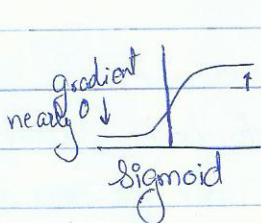 gradient
nearly 0 ↓
↑
Sigmoid